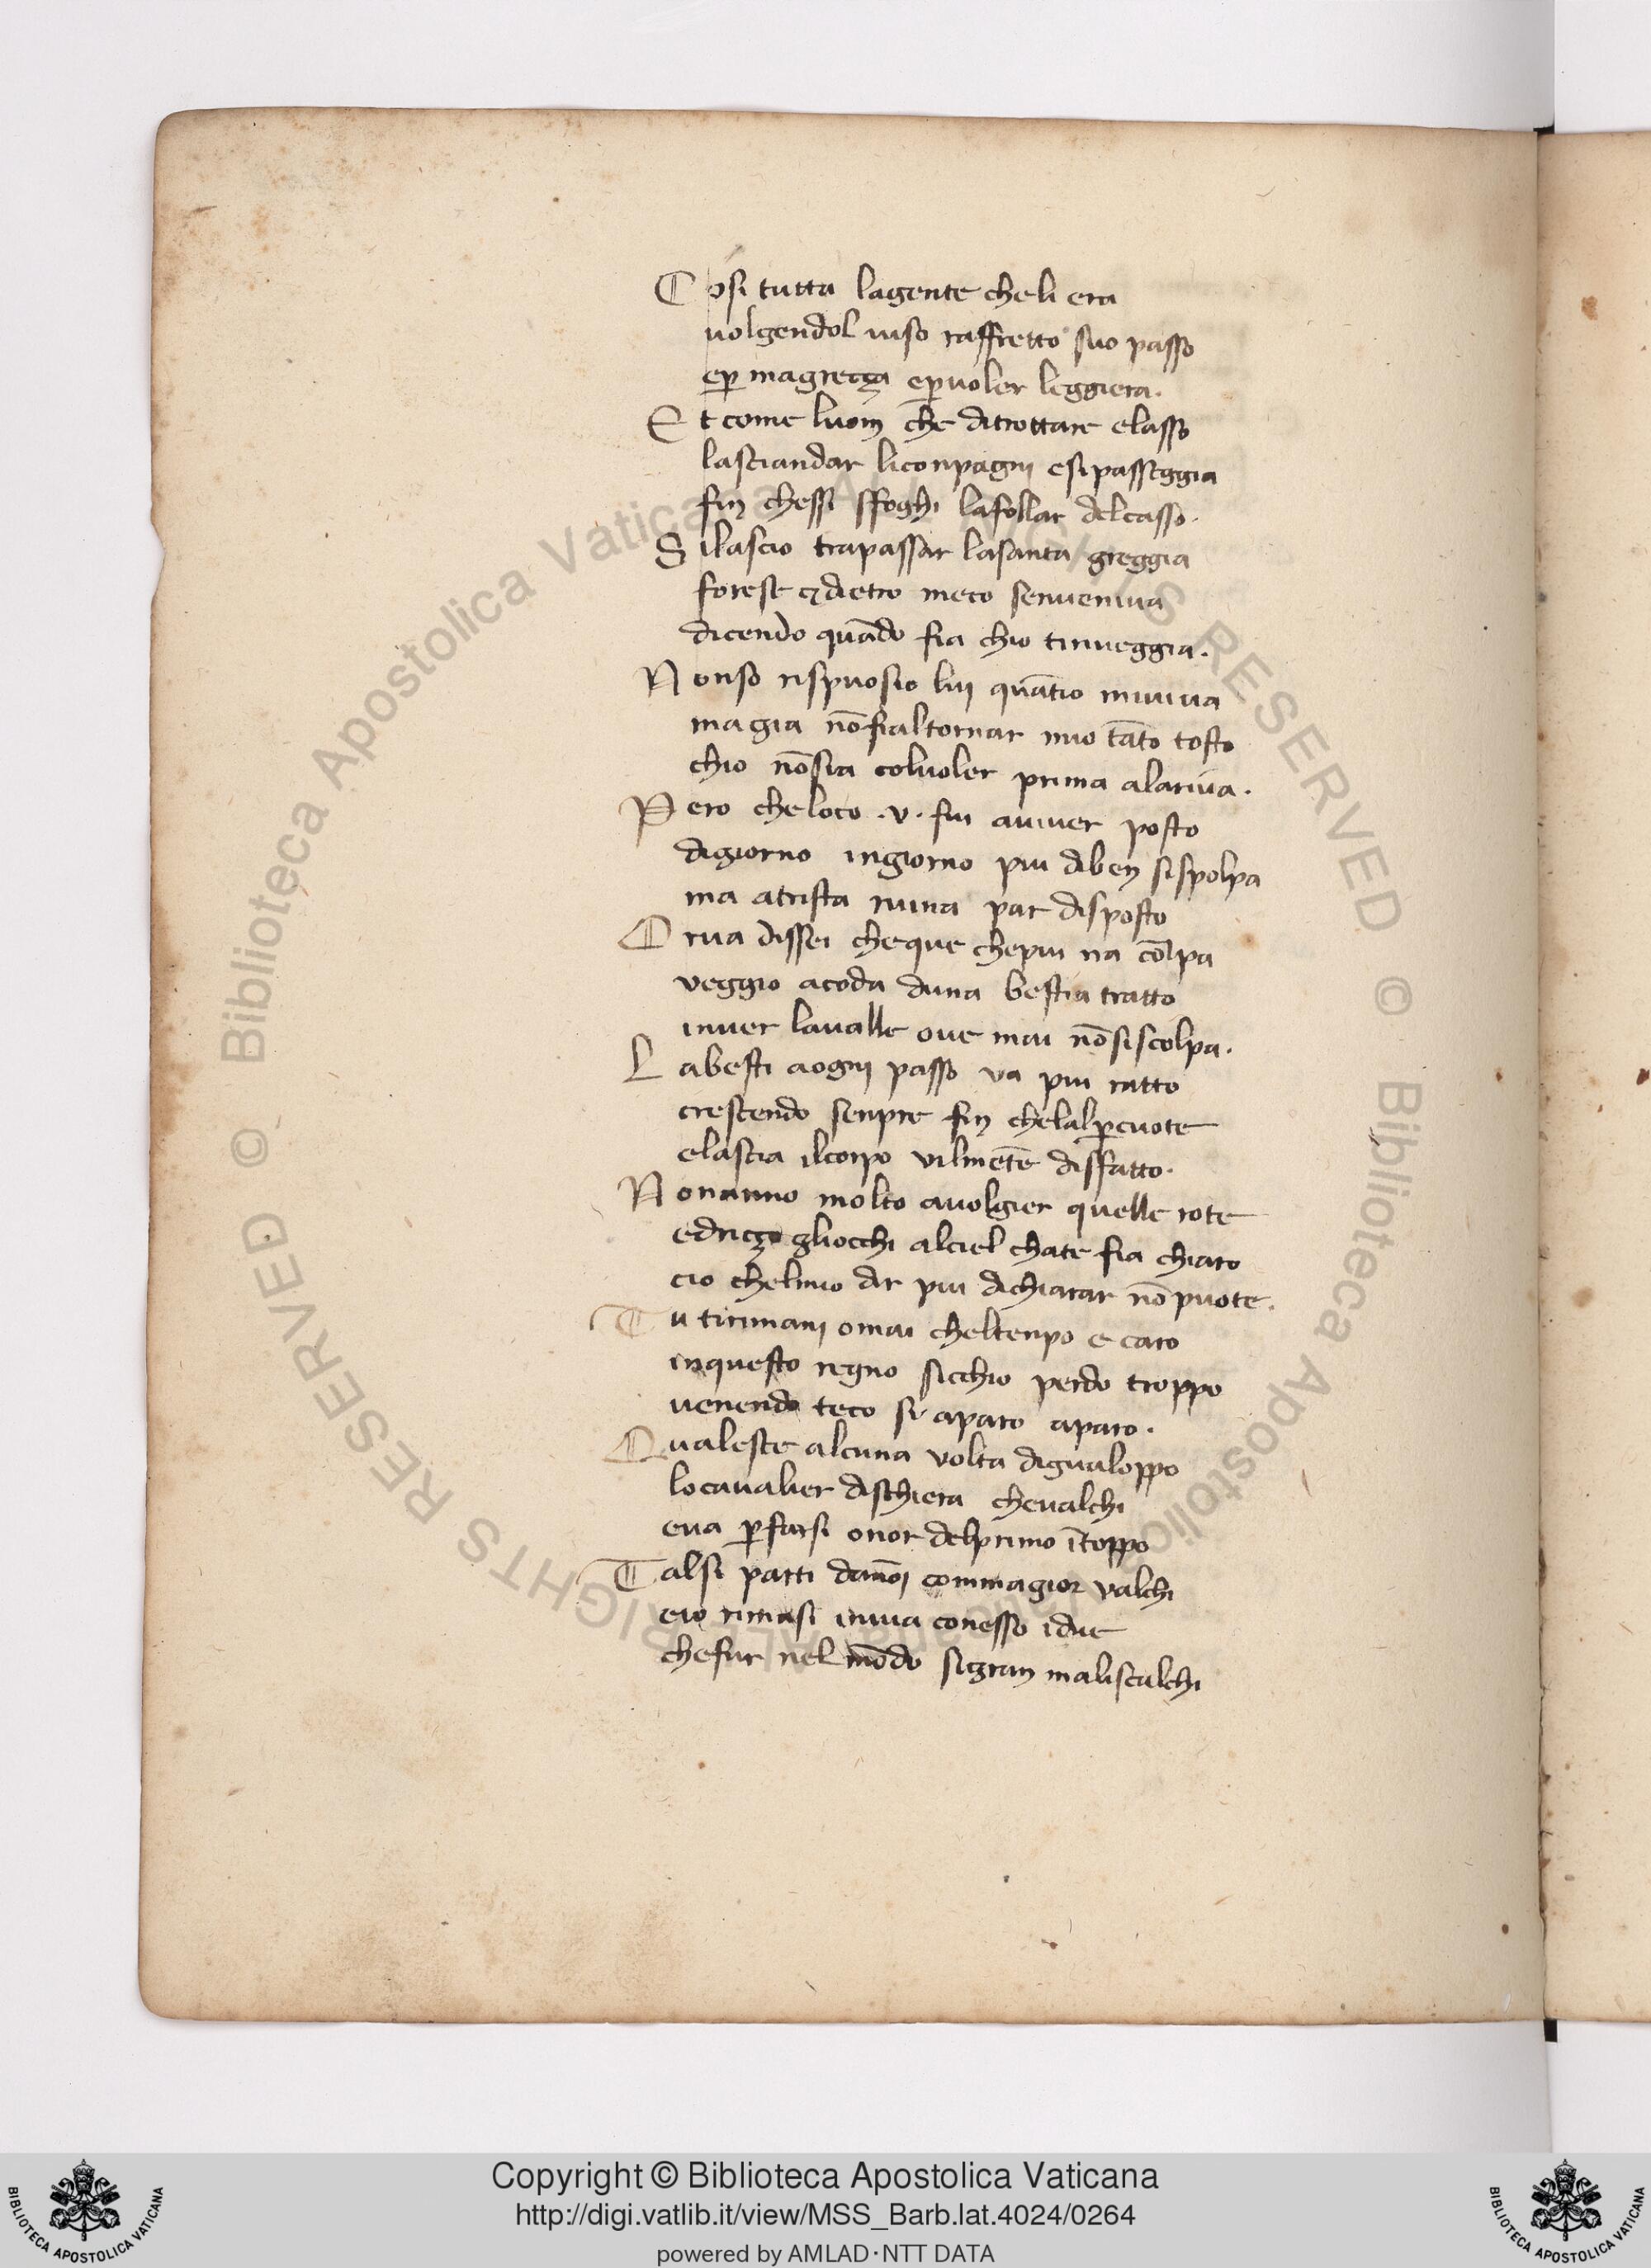 Cosi tutta lagente cheli era
uolgendol uiso raffretto suo passo
ep̱ magreçça ep̱uoler leggiera.
Et come luom che ditrottare elasso
lasciandar liconpagni esipasseggia
fin chessi sfoghi lafollar delcasso.
Silascio trapassar lasanta greggia
forese ⁊dietro meco senueniua
dicendo quādo fia chio tiriueggia.
Nonso rispuosio lui quātio miuiua
magia nō fialtornar mio tāto tosto
chio nōsia coluoler prima alariua.
Pero cheloco .v. fui auiuer posto
digiorno ingiorno piu diben sispolpa
ma atrista ruina par disposto
Orua dissei cheque chepiu na cōlpa
veggio acoda duna bestia tratto
inuer laualle oue mai nōsiscolpa.
Labesti aogni passo va piu ratto
crescendo senpre fin chelalp̱cuote
elascia ilcorpo vilmēte disfatto.
Nonanno molto auolgier quelle rote
edriçço gliocchi alciel chate fia chiaro
cio chelmio dir piu dichiarar nō puote.
Tu tirimani omai cheltenpo e caro
inquesto regno sicchio perdo troppo
uenendo teco si aparo aparo.
Qualesce alcuna volta digualoppo
locaualier dischiera cheualchi
eua p̱farsi onor delprimo ītoppo
Talsi parti danoi commagior valchi
eio rimasi inuia conesso idue
chefur nel mōdo sigran maliscalchi
Copyright © Biblioteca Apostolica Vaticana
http://digi.vatlib.it/view/MSS_Barb.lat.4024/0264
powered by AMLAD·NTT DATA
BIBLIOTECA APOSTOLICA VATICANA
BIBLIOTECA APOSTOLICA VATICANA
© Biblioteca Apostolica Vaticana ALL RIGHTS RESERVED
© Biblioteca Apostolica Vaticana ALL RIGHTS RESERVED